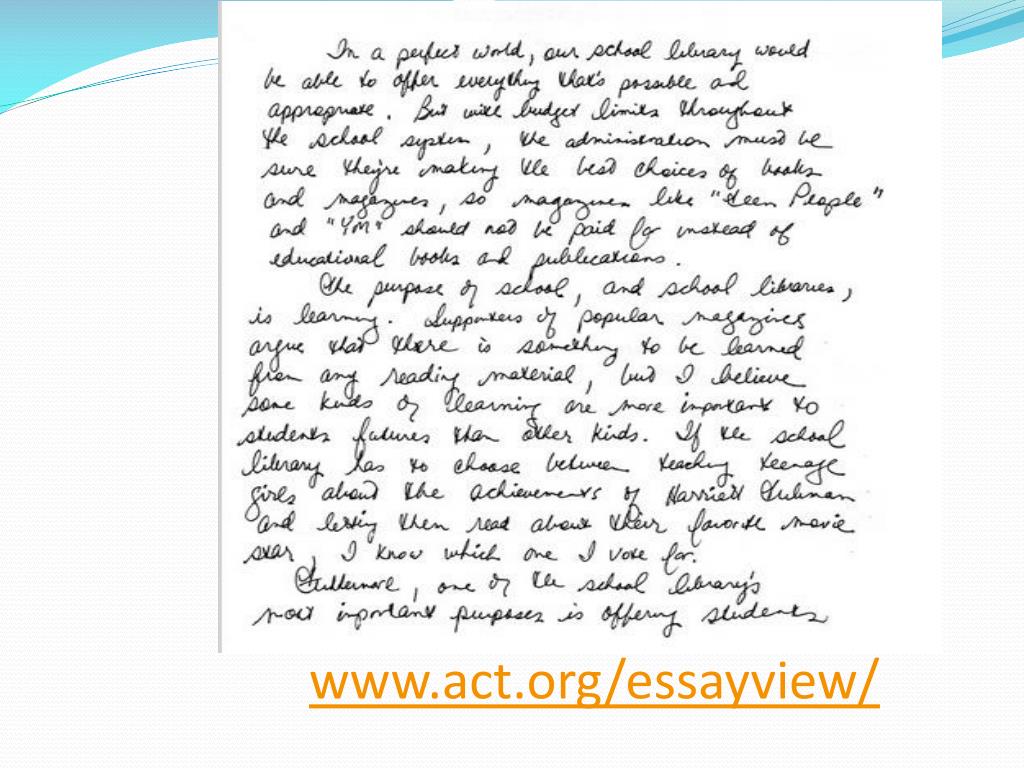 In a perfect world, our school library would
be able to offer everything that's possible and
appropriate. But with budget limits throughout
the school system, the administration must be
sure they're making the best choices of books
and magazines, so magazines like "Teen People"
and "YM" should not be paid for instead of
educational books and publications.
The purpose of school, and school libraries,
is learning. Supporters of popular magazines
argue that there is something to be learned
from any reading material, but I believe
some kinds of learning are more important to
students futures than other kinds. If the school
library has to choose between teaching teenage
girls about the achievements of Harriett Tubman
and letting them read about their favorite movie
star, I know which one I vote for.
Furthermore, one of the school library's
most important purposes is offering students
www.act.org/essayview/